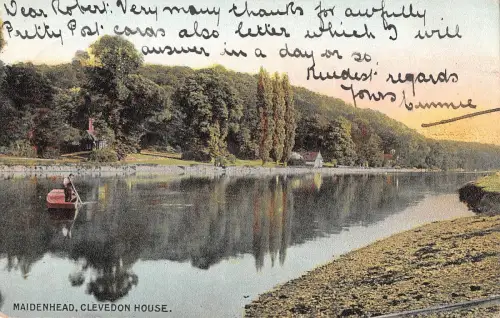 Dear Robert. Very many thanks for awfully
Pretty Post cards also letter which I will
answer in a day or so.
Kindest regards
Yours Connie
MAIDENHEAD, CLEVEDON HOUSE.